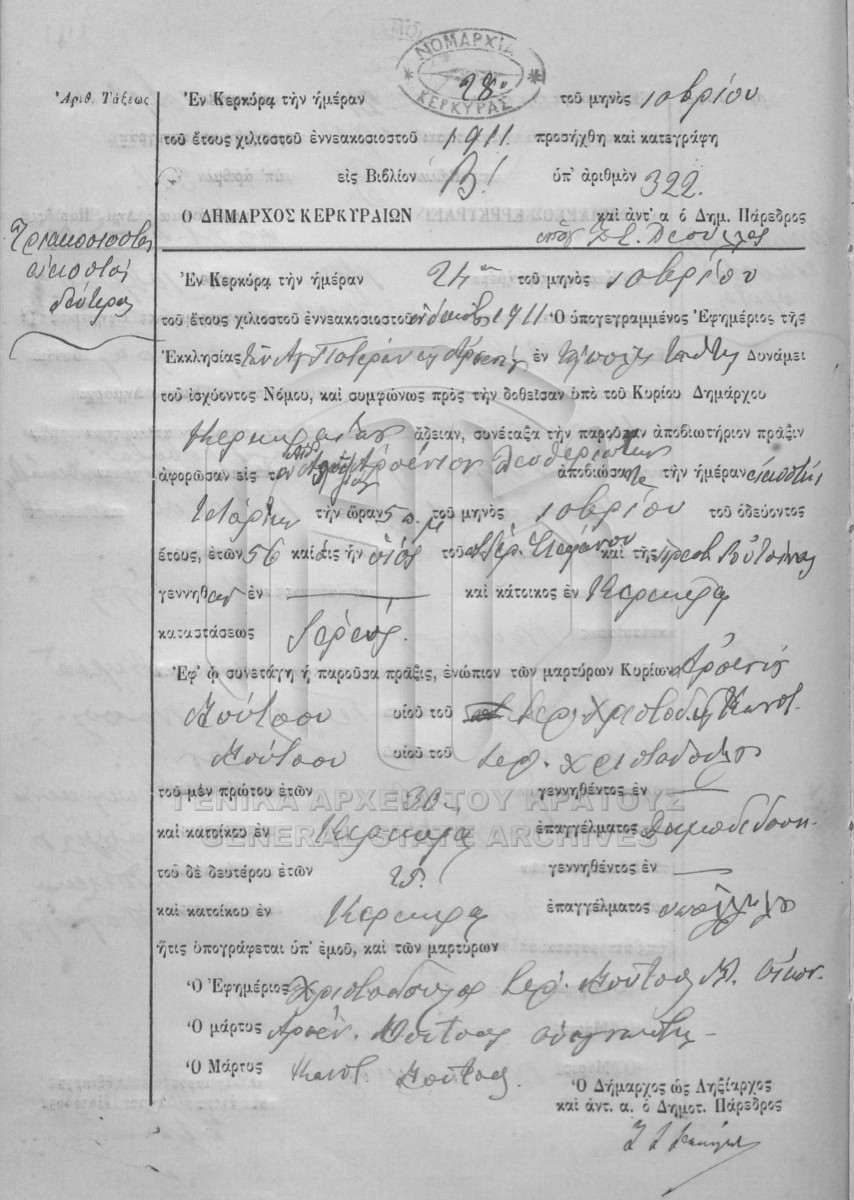 ΝΟΜΑΡΧΙΑ
ΚΕΡΚΥΡΑΣ
Ἀριθ. Τάξεως
Ἐν Κερκύρᾳ τὴν ἡμέραν 28ην τοῦ μηνὸς 10βρίου
τοῦ ἔτους χιλιοστοῦ ἐννεακοσιοστοῦ 1911 προσήχθη καὶ κατεγράφη
εἰς Βιβλίον Β! ὑπ' ἀριθμὸν 322.
Ὁ ΔΗΜΑΡΧΟΣ ΚΕΡΚΥΡΑΙΩΝ καὶ ἀντ' α ὁ Δημ. Πάρεδρος
Τριακοσιοστὸς
εἰκοστὸς
δεύτερος
Ἐν Κερκύρᾳ τὴν ἡμέραν 24ην τοῦ μηνὸς 10βρίου
τοῦ ἔτους χιλιοστοῦ ἐννεακοσιοστοῦ 1911 Ὁ ὑπογεγραμμένος Ἐφημέριος τῆς
Ἐκκλησίας τῶν Ἁγ Πατέρων ἐν ταύτῃ Δυνάμει
τοῦ ἰσχύοντος Νόμου, καὶ συμφώνως πρὸς τὴν δοθεῖσαν ὑπὸ τοῦ Κυρίου Δημάρχου
Κερκυραίων ἄδειαν, συνέταξα τὴν παροῦσαν ἀποβιωτήριον πρᾶξιν
ἀφορῶσαν εἰς τὸν Ἀρσένιον ἀποβιώσαντα τὴν ἡμέραν εἰκοστὴν
τετάρτην τὴν ὥραν 5 π.μ τοῦ μηνὸς 10βρίου τοῦ ὁδεύοντος
ἔτους, ἐτῶν 56 καὶ εἰς ἦν υἱὸς τοῦ Ἱερ. Στεφάνου καὶ τῆς
γεννηθεὶς ἐν καὶ κάτοικος ἐν Κερκύρᾳ
καταστάσεως Ἱερεὺς.
Ἐφ' ᾧ συνετάγη ἡ παροῦσα πρᾶξις, ἐνώπιον τῶν μαρτύρων Κυρίων Ἀρσενίου
Βούτσου υἱοῦ τοῦ Ἱερ. Χριστοδούλου Κωνστ.
Βούτσου υἱοῦ τοῦ Ἱερ. Χριστοδούλου
τοῦ μὲν πρώτου ἐτῶν 30 γεννηθέντος ἐν
καὶ κατοίκου ἐν Κερκύρᾳ ἐπαγγέλματος
τοῦ δὲ δευτέρου ἐτῶν 25. γεννηθέντος ἐν
καὶ κατοίκου ἐν Κερκύρᾳ ἐπαγγέλματος
ἥτις ὑπογράφεται ὑπ' ἐμοῦ, καὶ τῶν μαρτύρων
Ὁ Ἐφημέριος Χριστόδουλος Ἱερ. Βούτσος Μ. Οἰκον.
Ὁ μάρτυς Ἀρσέν. Βούτσος ἀναγνώστης
Ὁ Μάρτυς Κωνστ. Βούτσος
Ὁ Δήμαρχος ὡς Ληξίαρχος
καὶ ἀντ. α. ὁ Δημοτ. Πάρεδρος
ΓΕΝΙΚΑ ΑΡΧΕΙΑ ΤΟΥ ΚΡΑΤΟΥΣ
GENERAL STATE ARCHIVES